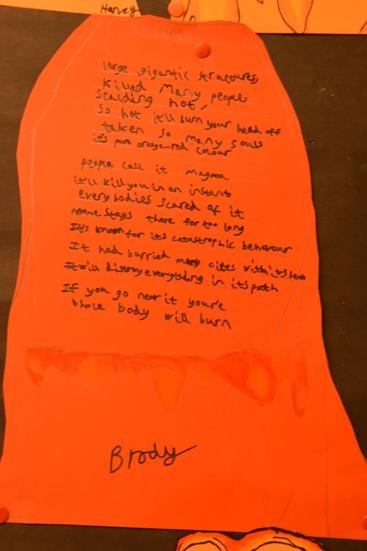 Harvey
large gigantic structures,
Killed Many people
Scalding hot,
So hot it'll burn your head off
taken so many souls
it's pure orange-red colour
people call it magma
it'll kill you in an instant
everybodies scared of it
noone stays there for too long
It's known for its catastrophic behaviour
It had burried many cites with its
It will distroy everything in its path
If you go near it youre
whole body will burn
Brody